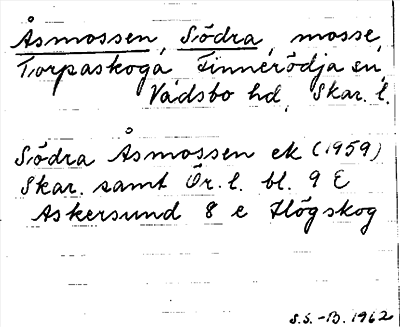 Åsmossen, Södra, mosse,
Torpaskoga Finnerödja sn,
Vadsbo hd, Skar. l.
Södra Åsmossen ek (1959)
Skar. samt Ör. l. bl. 9 E
Askersund 8 e Högskog
S.S.-B. 1962